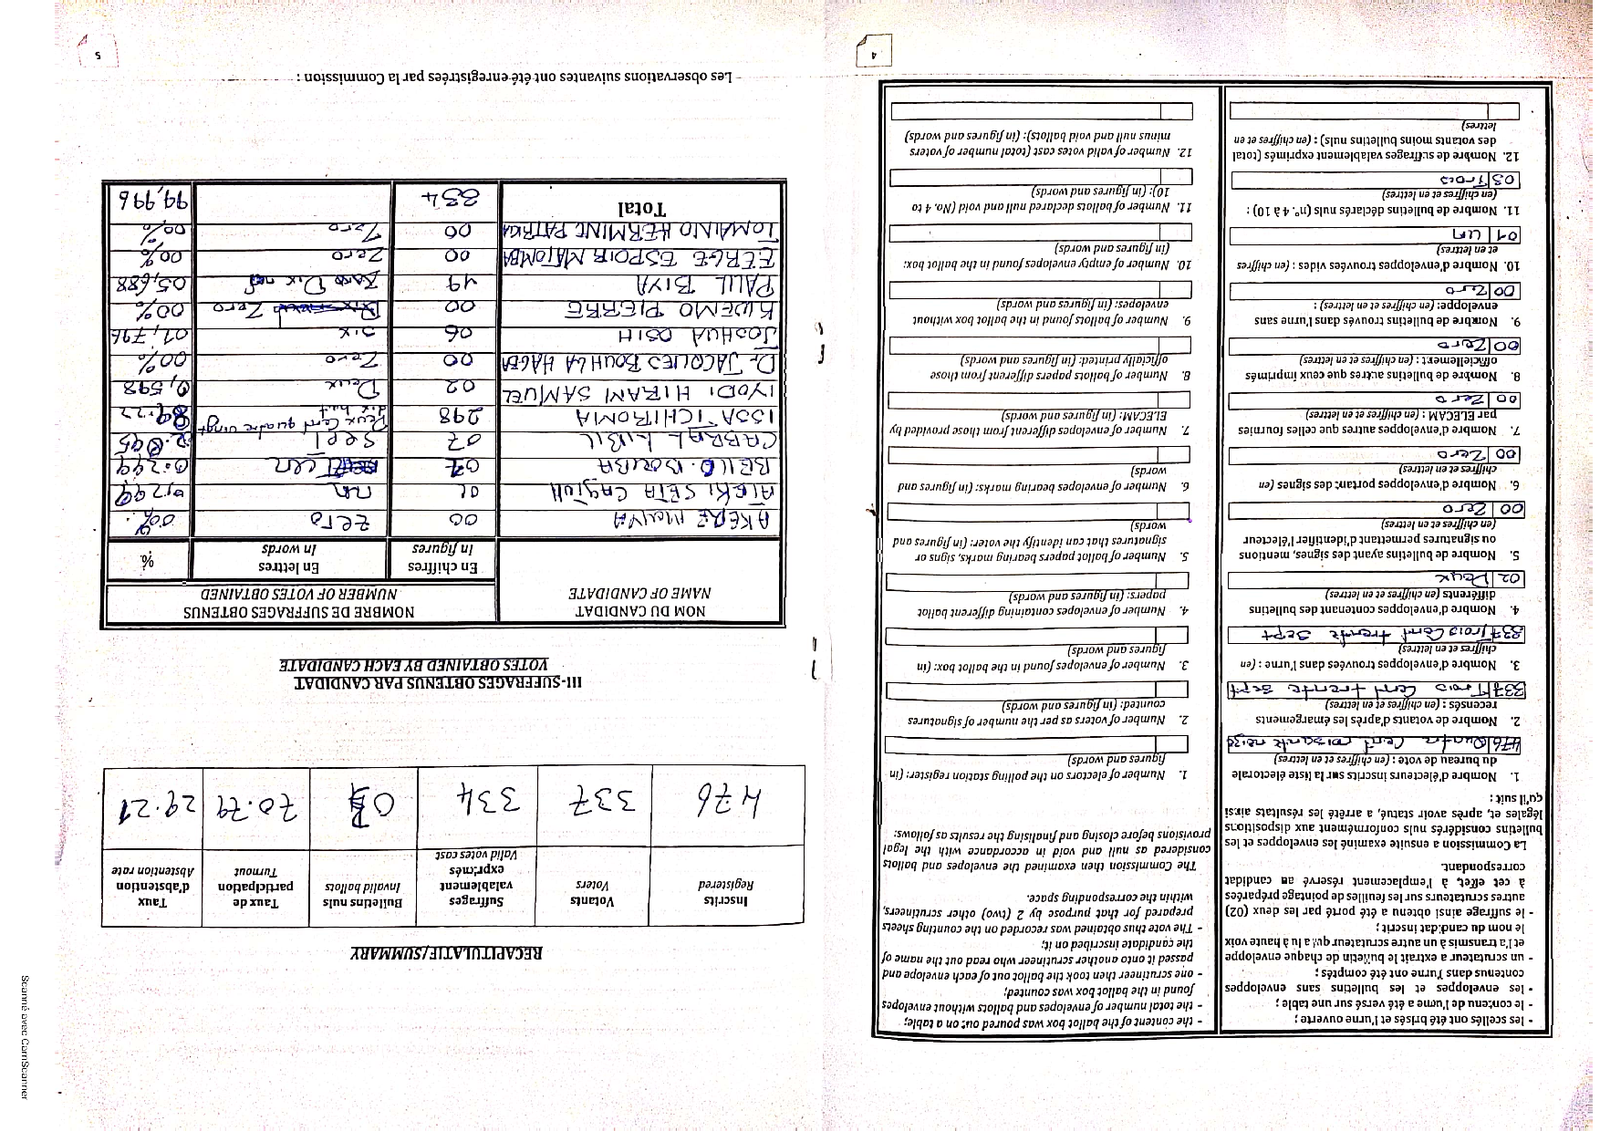 4
- les scellés ont été brisés et l'urne ouverte ;
- le contenu de l'urne a été versé sur une table ;
- les enveloppes et les bulletins sans enveloppes
contenus dans l'urne ont été comptés ;
- un scrutateur a extrait le bulletin de chaque enveloppe
et l'a transmis à un autre scrutateur qui a lu à haute voix
le nom du candidat inscrit ;
- le suffrage ainsi obtenu a été porté par les deux (02)
autres scrutateurs sur les feuilles de pointage préparées
à cet effet, à l'emplacement réservé au candidat
correspondant.
La Commission a ensuite examiné les enveloppes et les
bulletins considérés nuls conformément aux dispositions
légales et, après avoir statué, a arrêté les résultats ainsi
qu'il suit :
1. Nombre d'électeurs inscrits sur la liste électorale
du bureau de vote : (en chiffres et en lettres)
476 Quatre Cent
2. Nombre de votants d'après les émargements
recensés : (en chiffres et en lettres)
337 Trois Cent trente sept
3. Nombre d'enveloppes trouvées dans l'urne : (en
chiffres et en lettres)
337 Trois Cent trente sept
4. Nombre d'enveloppes contenant des bulletins
différents (en chiffres et en lettres)
02 Deux
5. Nombre de bulletins ayant des signes, mentions
ou signatures permettant d'identifier l'électeur
(en chiffres et en lettres)
00 Zero
6. Nombre d'enveloppes portant des signes (en
chiffres et en lettres)
00 Zero
7. Nombre d'enveloppes autres que celles fournies
par ELECAM : (en chiffres et en lettres)
00 Zero
8. Nombre de bulletins autres que ceux imprimés
officiellement : (en chiffres et en lettres)
00 Zero
9. Nombre de bulletins trouvés dans l'urne sans
enveloppe: (en chiffres et en lettres) :
00 Zero
10. Nombre d'enveloppes trouvées vides : (en chiffres
et en lettres)
01 un
11. Nombre de bulletins déclarés nuls (n°. 4 à 10) :
(en chiffres et en lettres)
03 Trois
12. Nombre de suffrages valablement exprimés (total
des votants moins bulletins nuls) : (en chiffres et en
lettres)
- the content of the ballot box was poured out on a table;
- the total number of envelopes and ballots without envelopes
found in the ballot box was counted;
- one scrutineer then took the ballot out of each envelope and
passed it onto another scrutineer who read out the name of
the candidate inscribed on it;
- The vote thus obtained was recorded on the counting sheets
prepared for that purpose by 2 (two) other scrutineers,
within the corresponding space.
The Commission then examined the envelopes and ballots
considered as null and void in accordance with the legal
provisions before closing and finalising the results as follows:
1. Number of electors on the polling station register: (in
figures and words)
2. Number of voters as per the number of signatures
counted: (in figures and words)
3. Number of envelopes found in the ballot box: (in
figures and words)
4. Number of envelopes containing different ballot
papers: (in figures and words)
5. Number of ballot papers bearing marks, signs or
signatures that can identify the voter: (in figures and
words)
6. Number of envelopes bearing marks: (in figures and
words)
7. Number of envelopes different from those provided by
ELECAM: (in figures and words)
8. Number of ballots papers different from those
officially printed: (in figures and words)
9. Number of ballots found in the ballot box without
envelopes: (in figures and words)
10. Number of empty envelopes found in the ballot box:
(in figures and words)
11. Number of ballots declared null and void (No. 4 to
10): (in figures and words)
12. Number of valid votes cast (total number of voters
minus null and void ballots): (in figures and words)
RECAPITULATIF/SUMMARY
Inscrits Registered
Votants Voters
Suffrages valablement exprimés Valid votes cast
Bulletins nuls Invalid ballots
Taux de participation Turnout
Taux d'abstention Abstention rate
476 337 334 03 70.79 29.21
III-SUFFRAGES OBTENUS PAR CANDIDAT
VOTES OBTAINED BY EACH CANDIDATE
NOM DU CANDIDAT NAME OF CANDIDATE
NOMBRE DE SUFFRAGES OBTENUS
NUMBER OF VOTES OBTAINED
En chiffres In figures
En lettres In words
%
AKERE MUNA 00 zero 00%
ATEKI SETA CAXTON 01 un 0,299
BELLO BOUBA 01 un 0.299
CABRAL LIBII 07 Sept 2.095
ISSA TCHIROMA 298 Deux Cent quatre vingt dix huit 89.22
IYODI HIRAM SAMUEL 02 Deux 0,598
Dr JACQUES BOUHGA HAGBE 00 Zero 00%
JOSHUA OSIH 06 six 01,796
KWEMO PIERRE 00 Zero 00%
PAUL BIYA 19 Dix neuf 05,688
SERGE ESPOIR MATOMBA 00 Zero 00%
TOMAINO HERMINE PATRICIA 00 Zero 00%
Total 334 99,996
Les observations suivantes ont été enregistrées par la Commission :
5
Scanné avec CamScanner